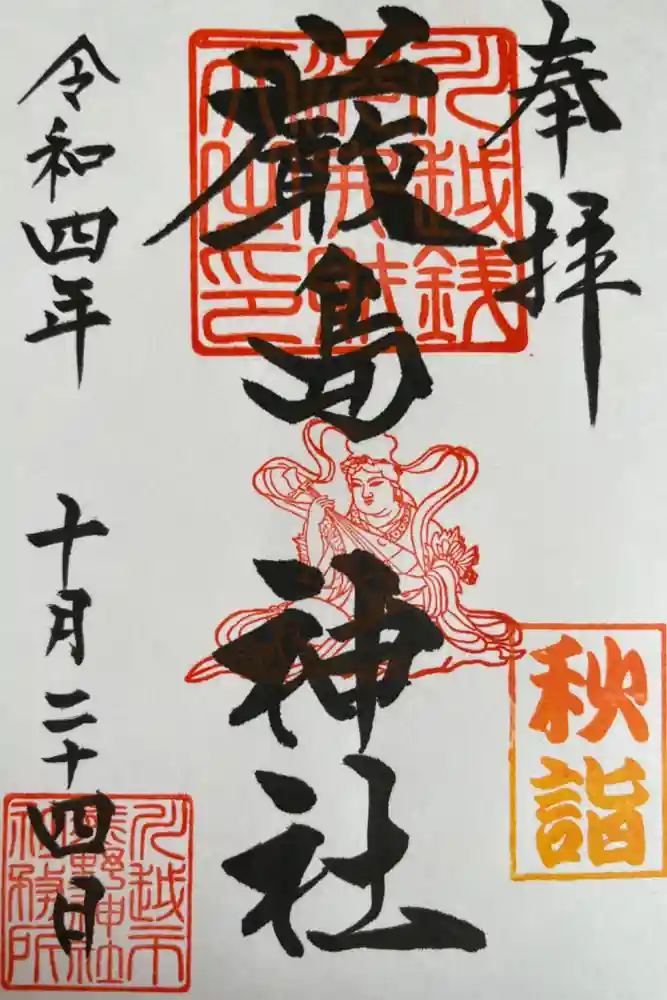 奉拝
川越銭
洗弁財
天之印
厳島神社
秋詣
令和四年
十月二十四日
川越市
熊野神社
社務所